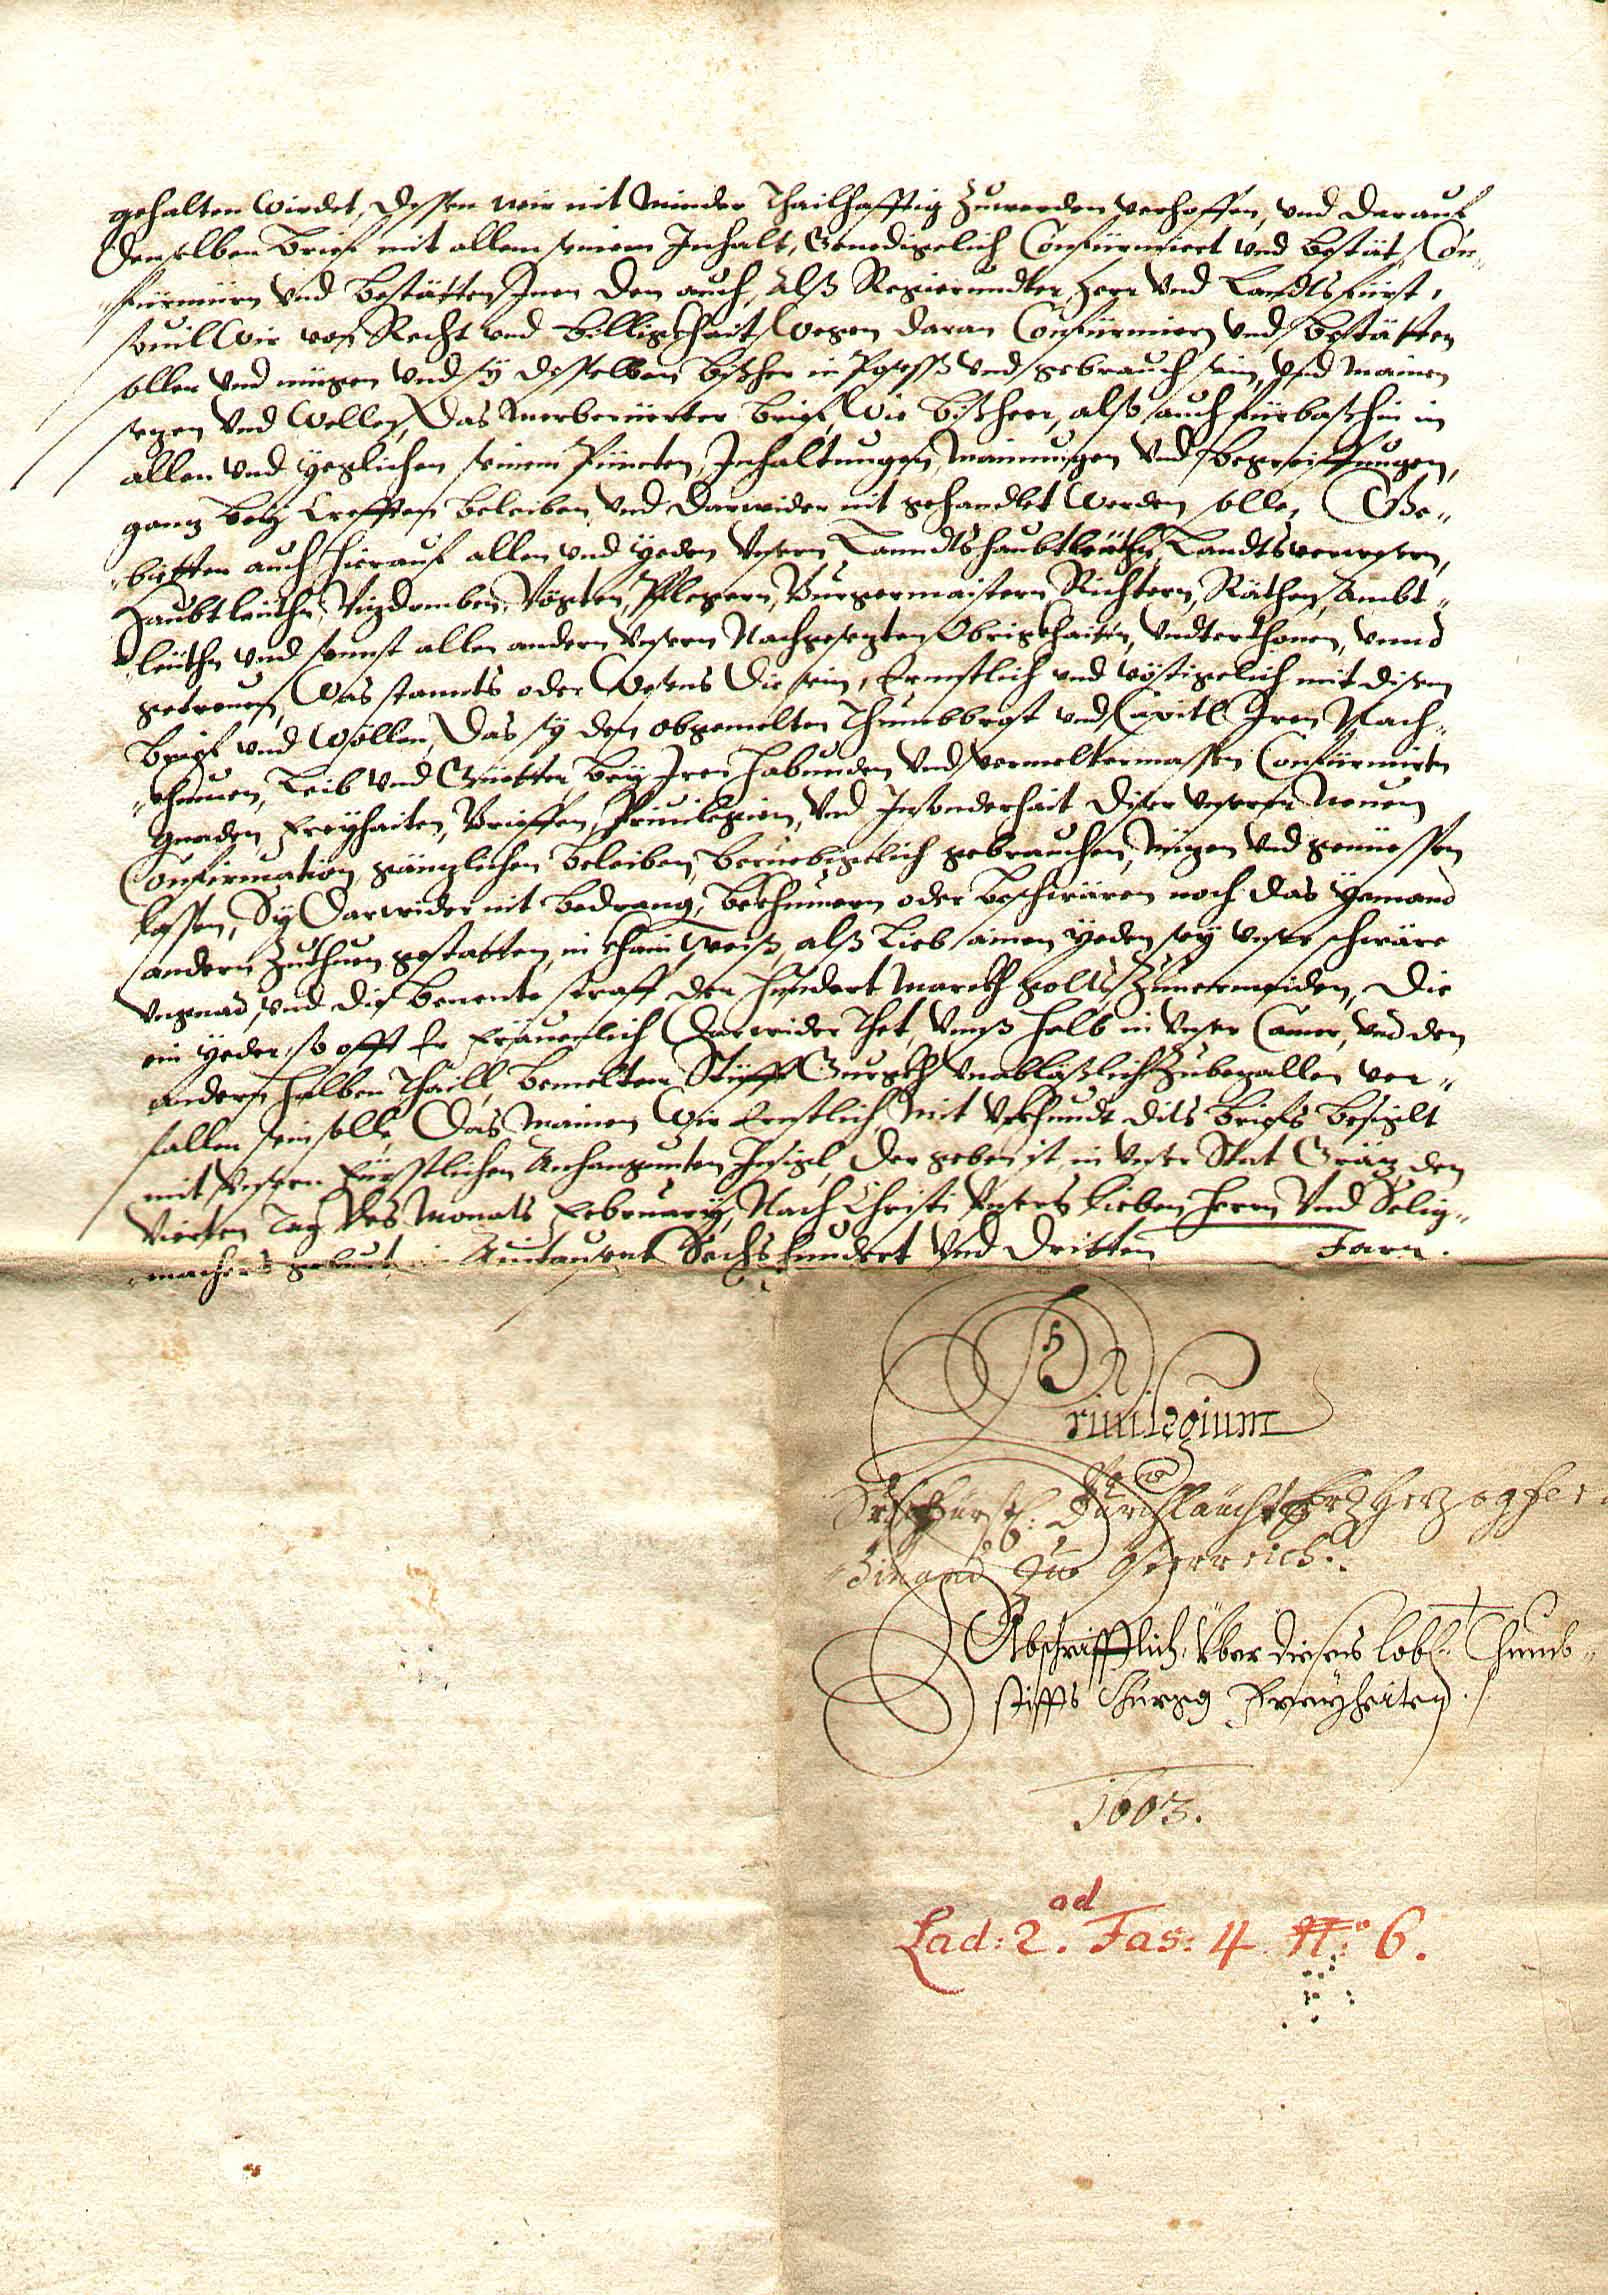 gehalten wirdet, dessen wir nit minder thailhafftig zuwerden verhoffen, und darauf
denselben Brief mit allem seinem Inhalt, Genedigclich Confiermiert und bestät, Con¬
¬fiermiern und bestätten Inen den auch, alß Regierundter Herr und Landtsfürst,
souil Wir von Recht und billigkhait Wegen daran Confiermiern und bestätten
sollen und mügen und sÿ desselben bißher in Posess und gebrauch sein, und mainen
sezen und Wellen, das merberüerter brief, Wie bißheer, also auch fürbaßhin in
allen und Yeglichen seinem Puncten, Inhaltungen, Mainungen und begreiffungen,
ganz beÿ Crefften beleiben, und darwider nit gehandlet Werden solle, Ge¬
¬bietten auch hierauf allen und Yeden Unsern Lanndtshaubtleuthn, Landtsverwesern,
Haubtleuthn, Vizdomben, Vögten, Pflegern, Burgermaistern, Richtern, Räthen, Ambt¬
¬leuthn und sonnst allen andern Unsern Nachgesezten Obrigkhaiten, Undterthonen, unnd
getreuen, Was stannts oder Wesens die sein, Ernstlich und vöstigclich mit disem
brief und Wöllen, das sÿ den obgemelten Thumbbrobst und Capitl Iren Nach¬
¬khumen, Leib und Güetter, beÿ Iren habunden und vermeltermassen Confiermirten
Gnaden, Freÿhaiten, Brieffen, Priuilegien, und Insonderhait diser unserer Neuen
Confirmation, gänzlichen beleiben, beruebigclich gebrauchen, nüzen und geniessen
lassen, Sÿ darwider nit bedrang, bekhumern oder beschwären noch das Yemand
andern zuthuen gestatten, in khain Weiß, alß Lieb ainem Yeden seÿ unser schwäre
ungnad, und die benente straff der Hundert Marckh golts, zuvermeiden, die
ein Yeder, so offt Er Fräuenlich darwider thet, unnß halb in unser Camer, und den
andern halben Thaill, bemeltem Stifft Gurgkh unabläßlich zubezallen ver¬
fallen sein solle, Das mainen Wir Ernstlich, mit Urkhundt dits briefs besiglt
mit Unserm Fürstlichen Anhangunten Insigl, der geben ist, in unser Stat Gräz, den
Vierten Tag des Monats Februarÿ, Nach Christi Unsers lieben Herrn und Selig¬
¬machers geburt im Aintausent Sechshundert und dritten Jarn.
Priuilegium
Von
Fürstl: Durchläucht Erzherzog Fer
¬dinand zue Össterreich.
Abschrifftlich, über dieses lobl: Thumb¬
stiffts Gurgg Freyheiten.
1603.
ad
Lad: 2. Fas: 4. No: 6.